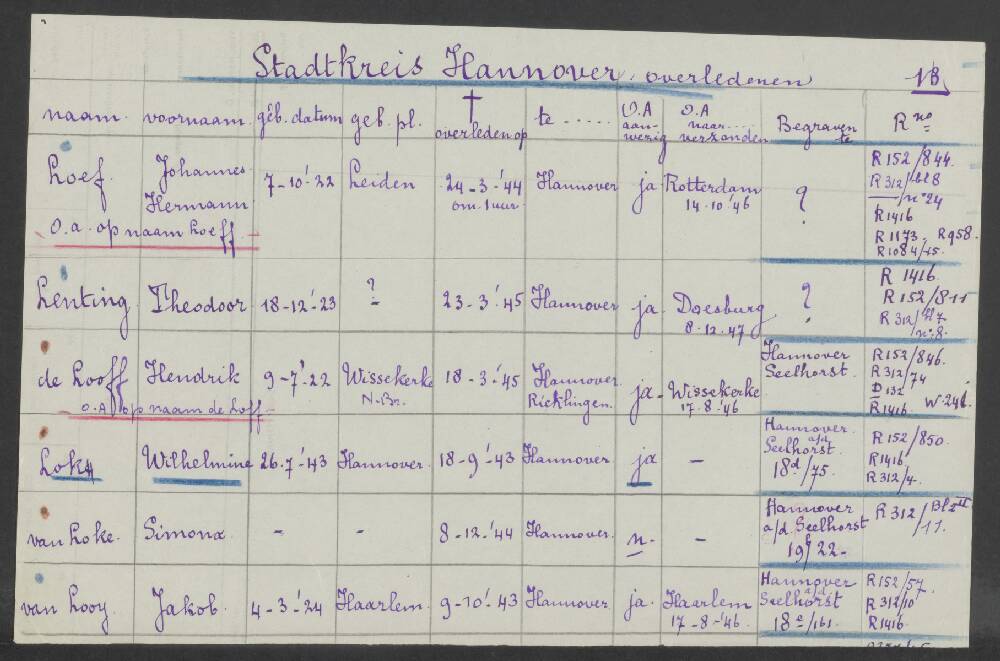 Stadtkreis Hannover. overledenen 18
naam. voornaam. géb. datum geb. pl. † overleden op te ...... O.A aan-wezig O.A naar.... verzonden Begraven te R no
Loef. Johannes Hermann 7-10-'22 Leiden 24-3-'44 om. 1 uur. Hannover ja Rotterdam 14.10.'46 ? R152/844. R312/bl8 n°24 R1416 R1173. R958. R1084/15.
O.a. op naam Loeff.
Lenting Theodoor 18-12-'23 ? 23-3-'45 Hannover ja. Doesburg 8.12.'47 ? R 1416. R152/811 R312/bl7 n°8.
de Looff Hendrik 9-7-'22 Wissekerke N.Br. 18-3-'45 Hannover Ricklingen. ja. Wissekerke 17.8.'46 Hannover Seelhorst. R152/846. R312/74 D132 R1416. W.246.
O.A op naam de Loff.
Lok Wilhelmine 26.7-'43 Hannover. 18-9-'43 Hannover. ja - Hannover. a/d Seelhorst 18d/75. R152/850. R1416. R312/4.
van Loke. Simona - - 8-12-'44 Hannover. n. - Hannover a/d. Seelhorst 19/22- R312/Bl II 11.
van Looy. Jakob. 4-3-'24 Haarlem. 9-10-'43 Hannover ja. Haarlem 17-8-'46. Hannover a/d Seelhorst 18e/161. R152/57. R312/10 R1416.